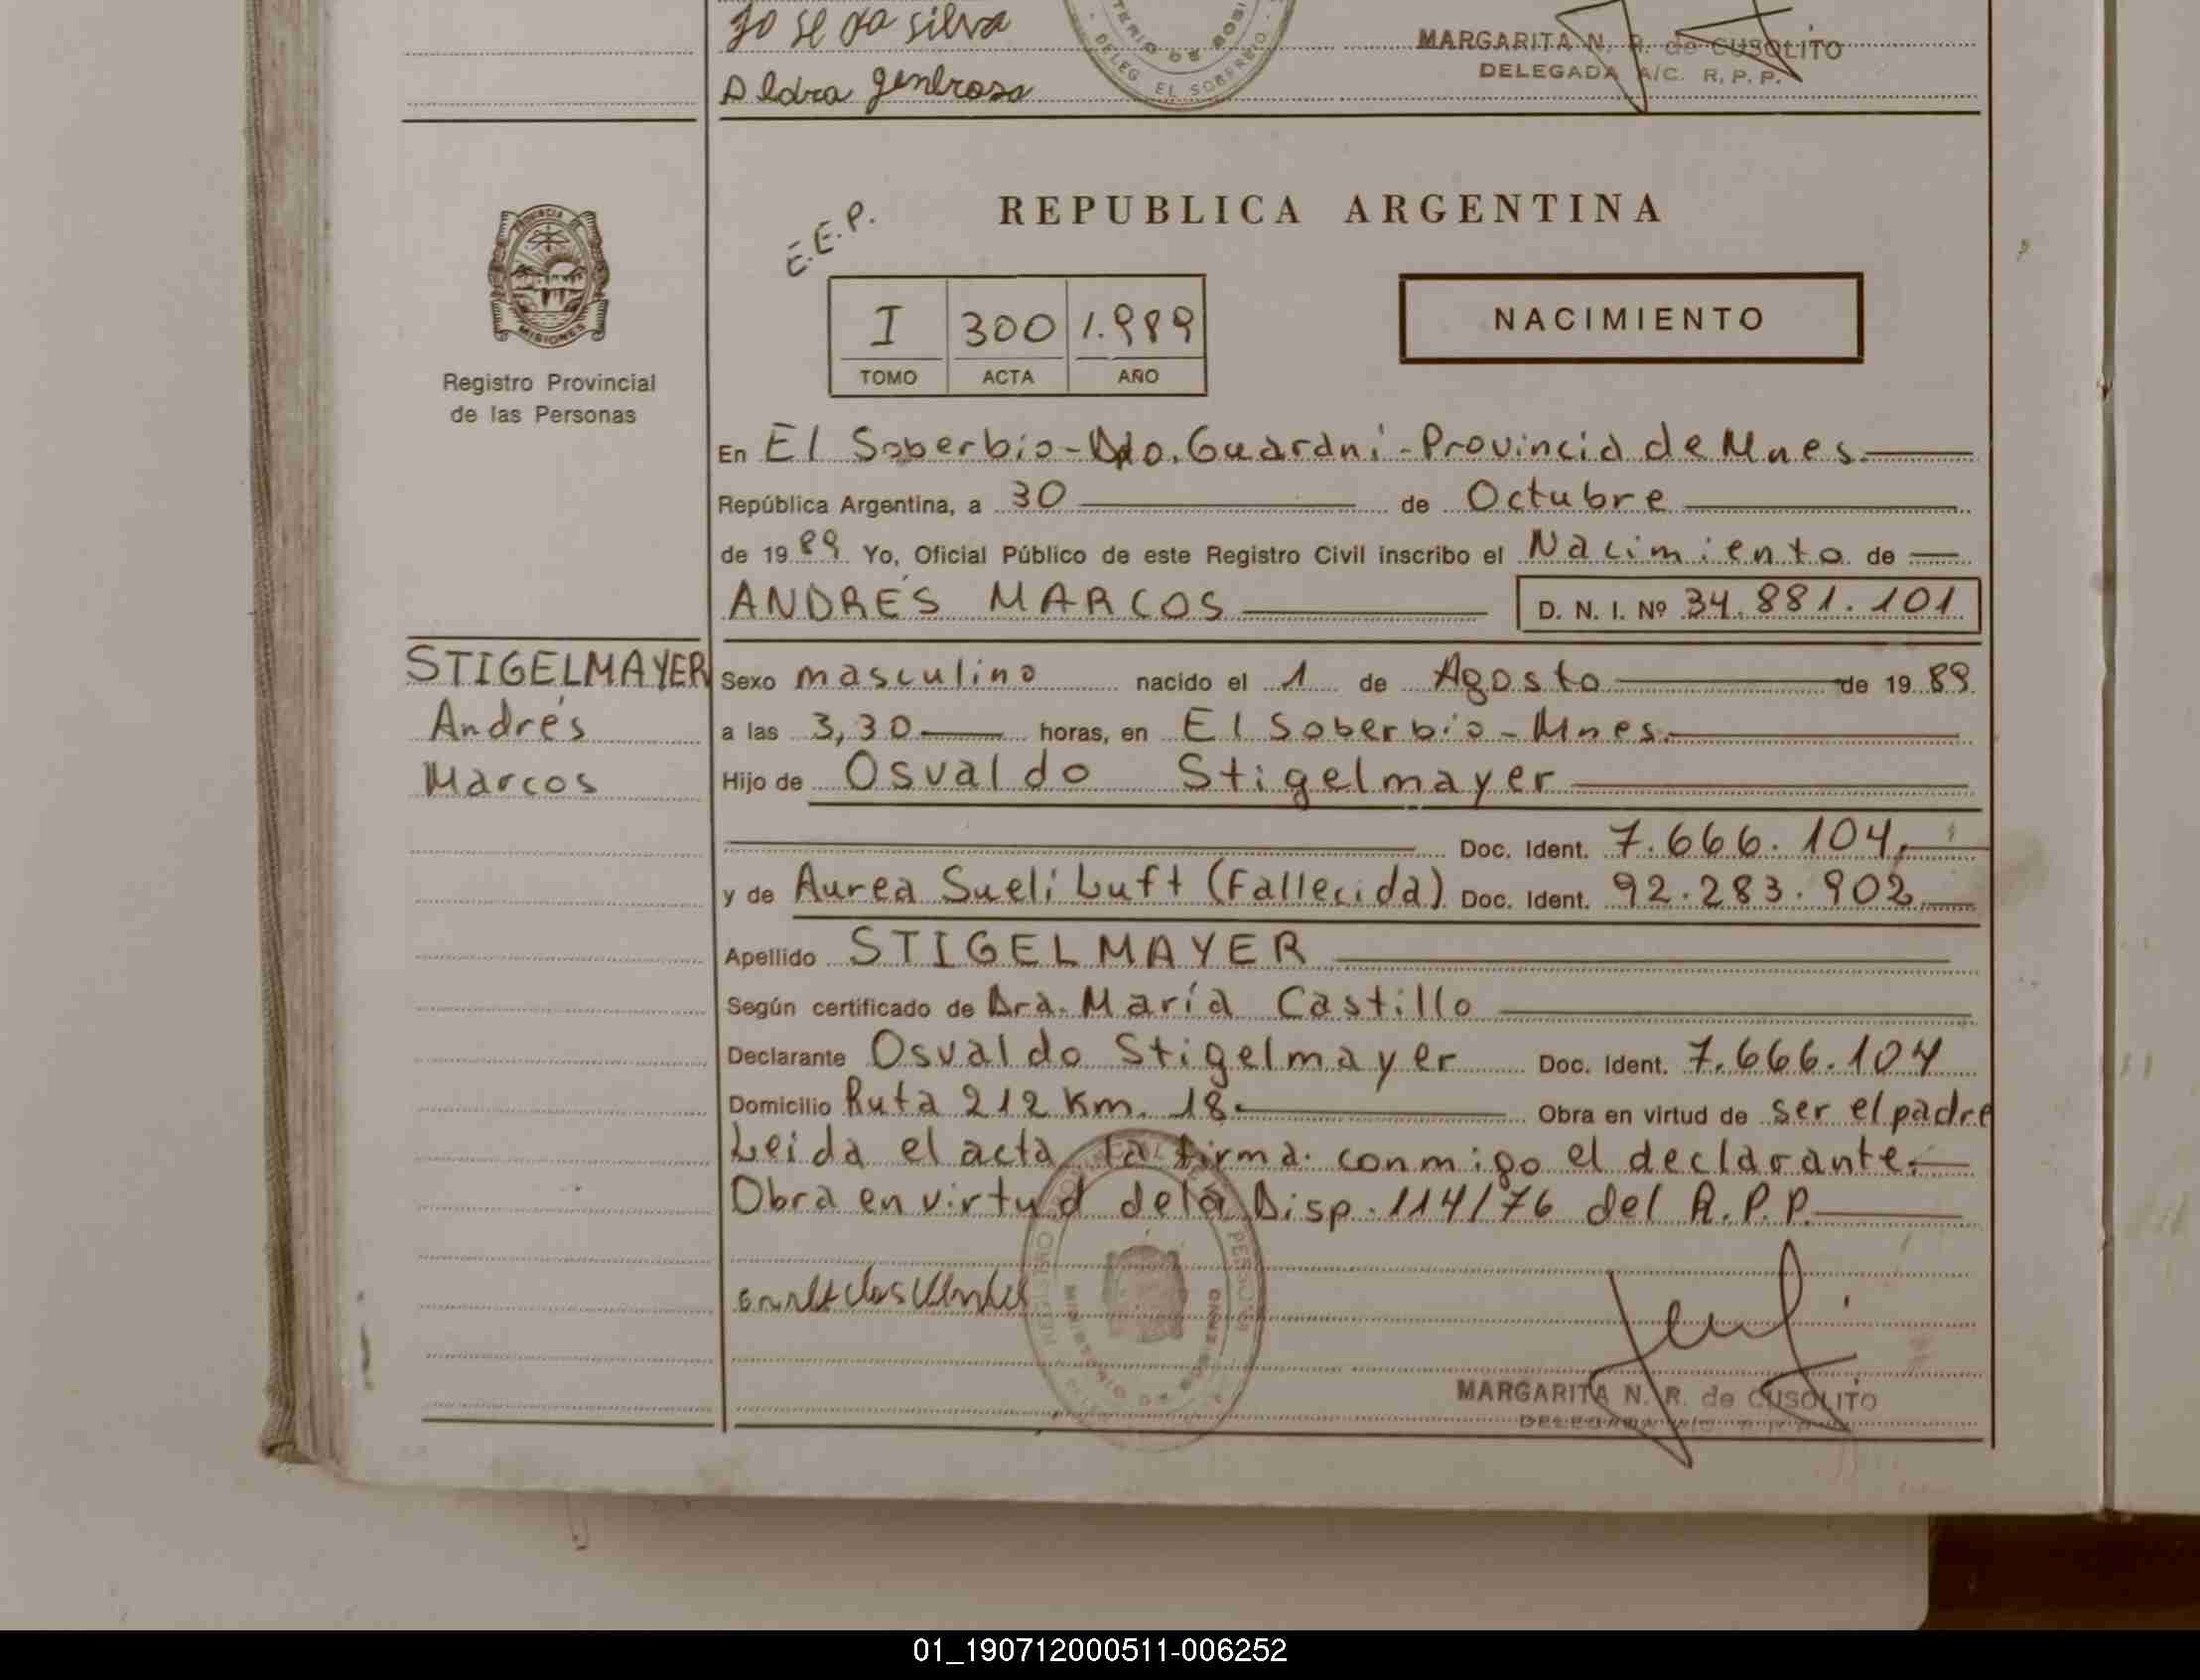 Jose da silva
MARGARITA N. R. de CUSOLITO
DELEGADA A/C. R. P. P.
DELEG EL SOBERBIO
REPUBLICA ARGENTINA
E.E.P.
PROVINCIA
MISIONES
I 300 1.989
TOMO ACTA AÑO
NACIMIENTO
Registro Provincial
de las Personas
En El Soberbio-Dto. Guaraní-Provincia de Mnes.
República Argentina, a 30 de Octubre
de 1989 Yo, Oficial Público de este Registro Civil inscribo el Nacimiento de
ANDRÉS MARCOS D. N. I. Nº 34.881.101
STIGELMAYER
Andrés
Marcos
Sexo masculino nacido el 1 de Agosto de 1989
a las 3,30 horas, en El Soberbio-Mnes.
Hijo de Osvaldo Stigelmayer
Doc. Ident. 7.666.104,
y de Aurea Sueli Luft (Fallecida) Doc. Ident. 92.283.902
Apellido STIGELMAYER
Según certificado de Dra. María Castillo
Declarante Osvaldo Stigelmayer Doc. Ident. 7.666.104
Domicilio Ruta 212 Km. 18. Obra en virtud de ser el padre
Leida el acta la firma conmigo el declarante.
Obra en virtud de la Disp. 114/76 del R.P.P.
MARGARITA N. R. de CUSOLITO
01_190712000511-006252